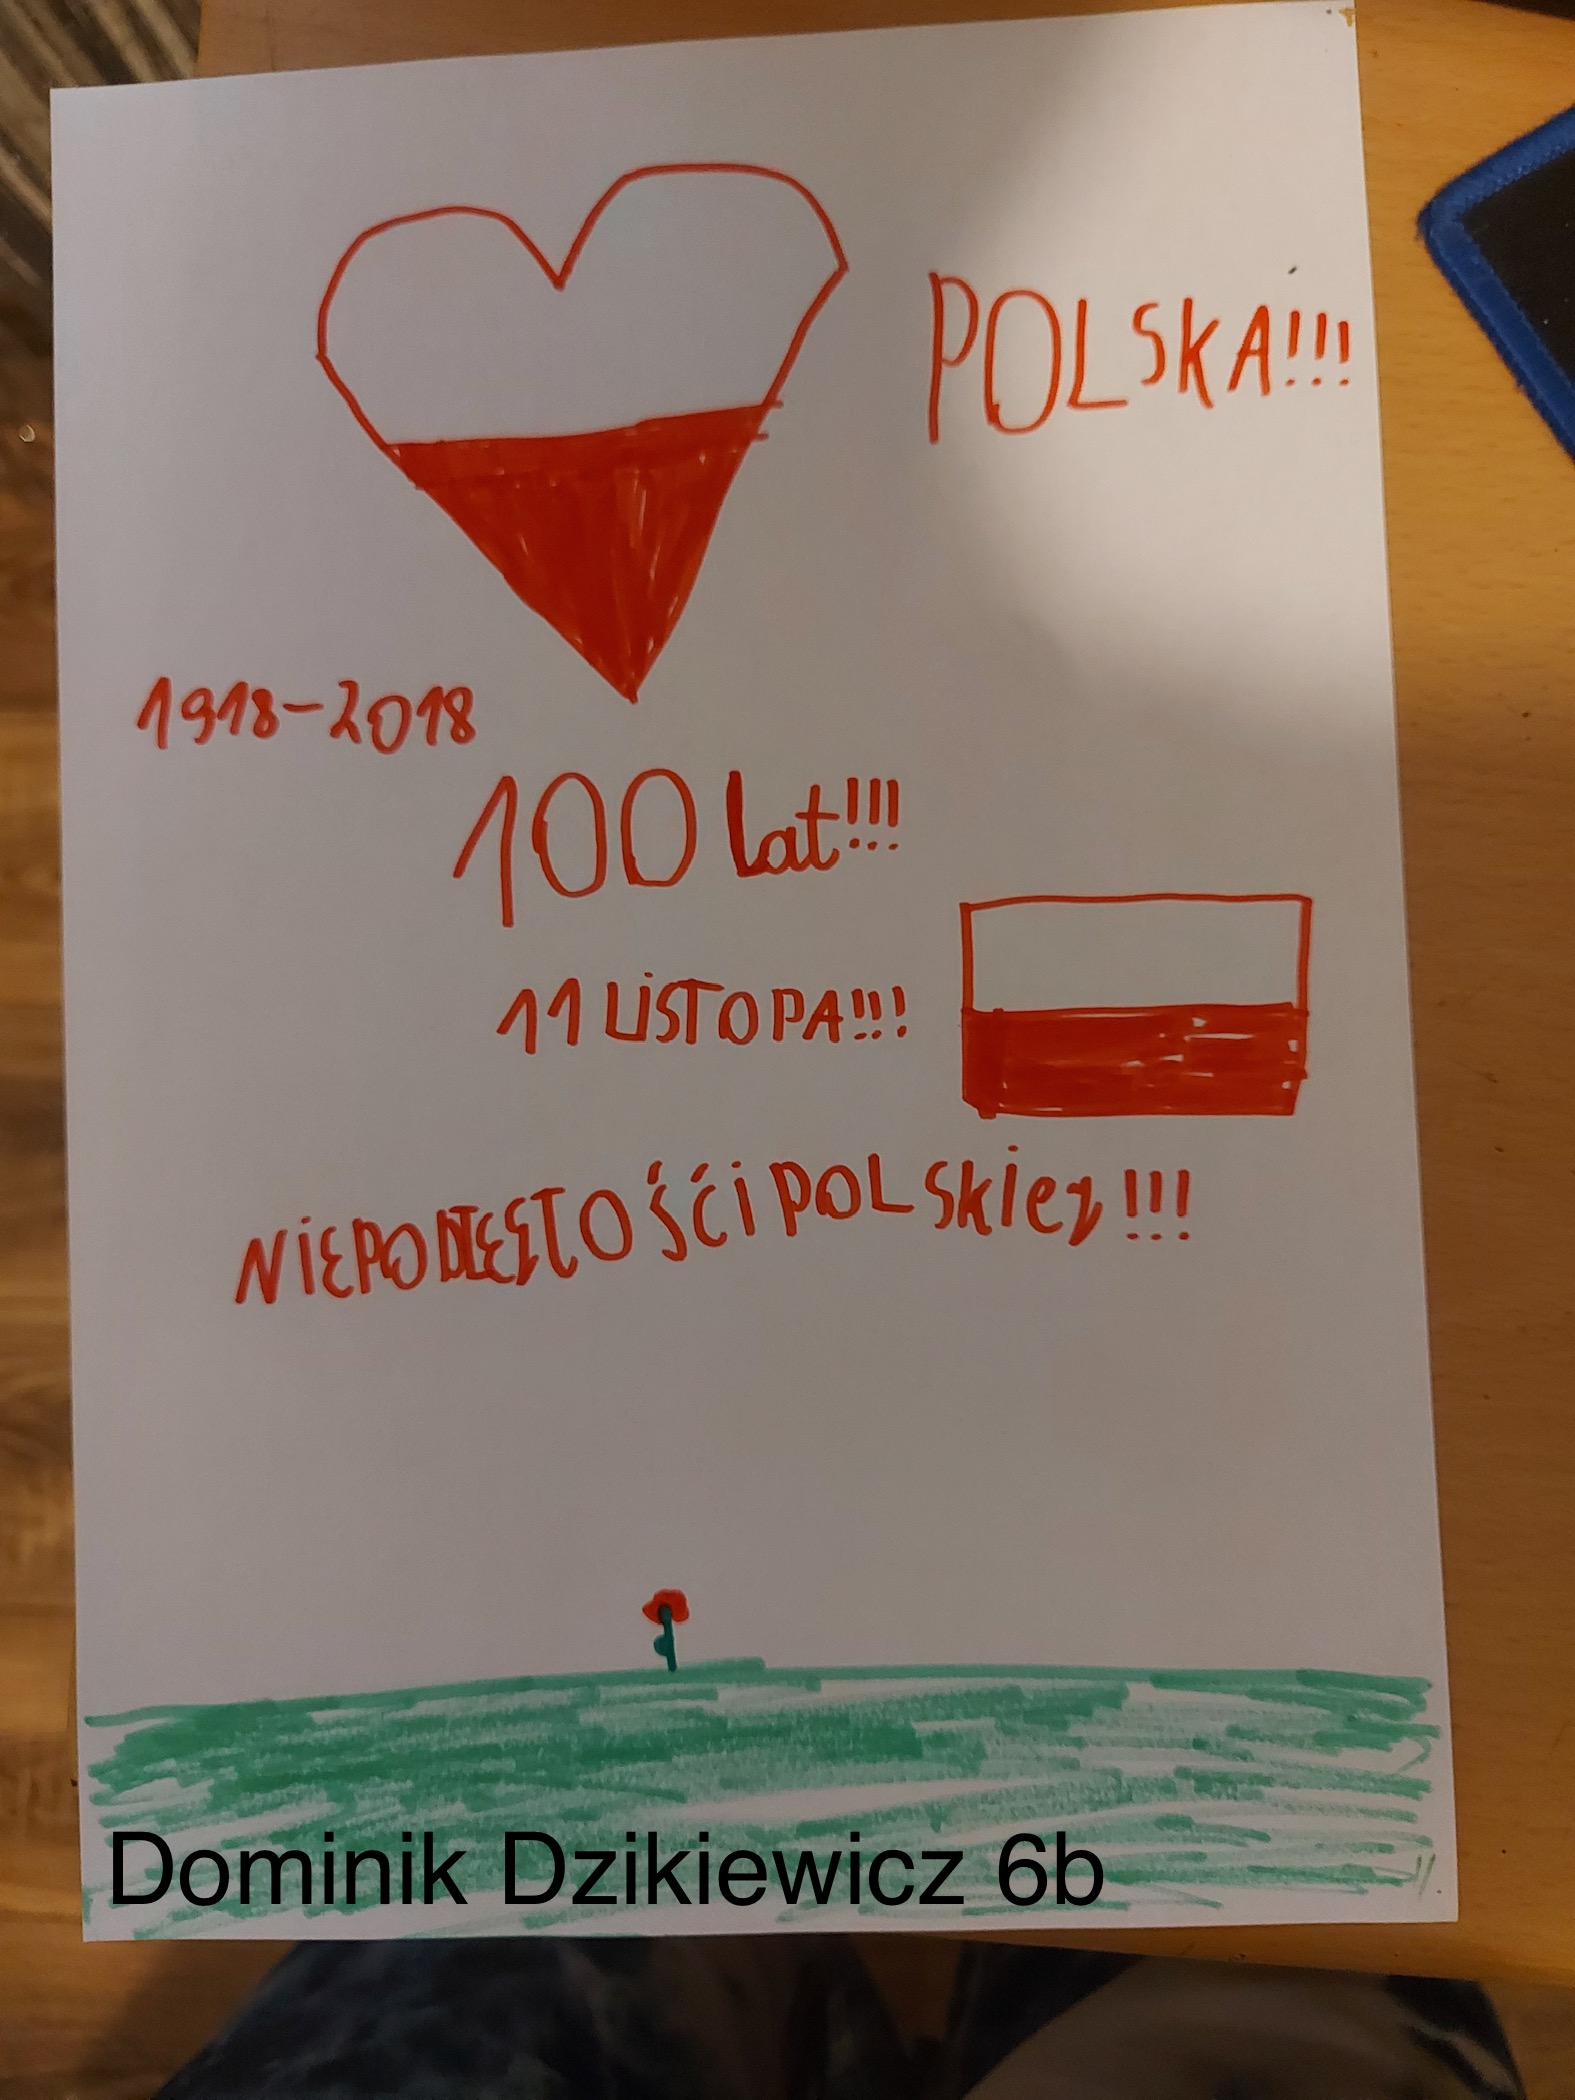 POLSKA!!!
1918-2018
100 lat!!!
11 LiSTOPA!!!
POLSkiej!!!
Dominik Dzikiewicz 6b